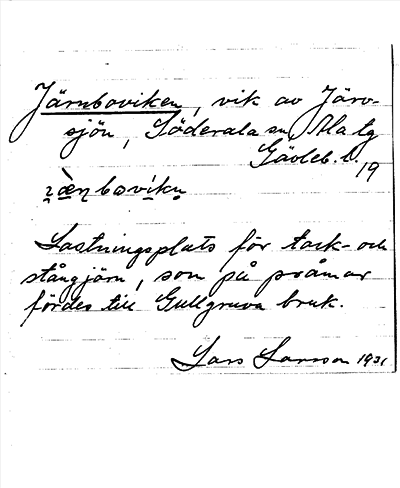 Järnboviken, vik av Järv-
sjön, Söderala sn, Ala tg
Gävleb. l.
19
Lastningsplats för tack- och
stångjärn, som på pråmar
fördes till Gullgruva bruk.
Lars Larsson 1931